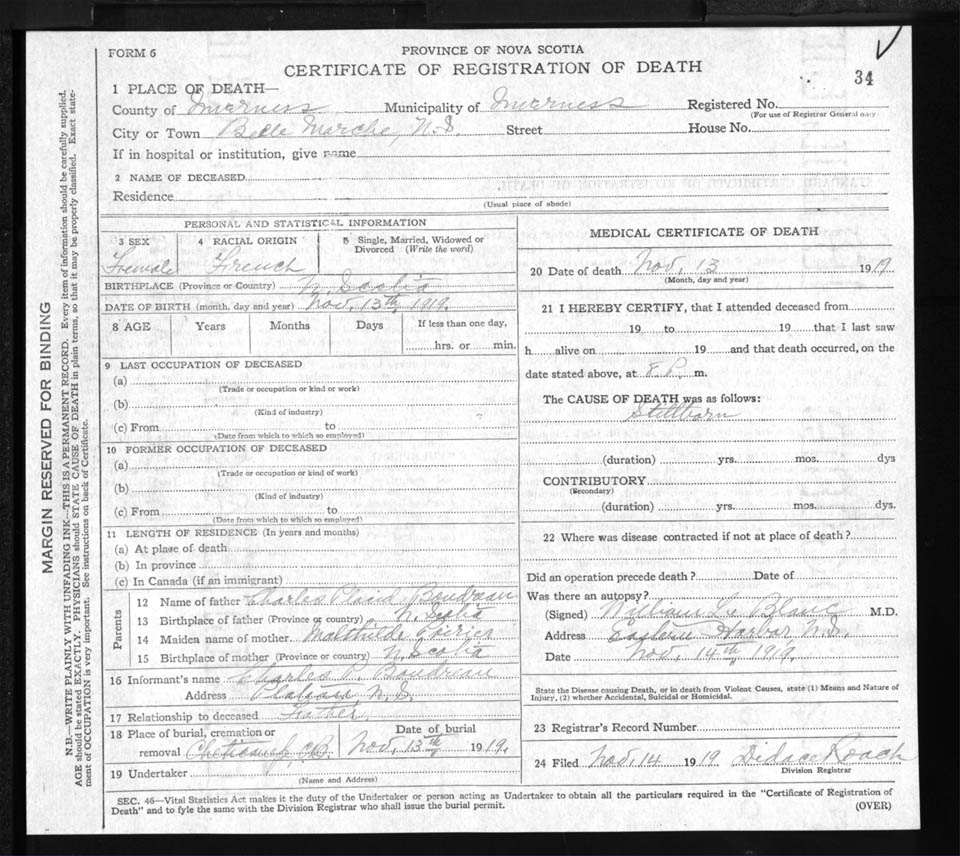 FORM 6
PROVINCE OF NOVA SCOTIA
CERTIFICATE OF REGISTRATION OF DEATH
34
1 PLACE OF DEATH—
County of Inverness Municipality of Inverness Registered No.
(For use of Registrar General only)
City or Town Belle Marche, N.S. Street House No.
If in hospital or institution, give name
2 NAME OF DECEASED
Residence
(Usual place of abode)
PERSONAL AND STATISTICAL INFORMATION
3 SEX 4 RACIAL ORIGIN 5 Single, Married, Widowed or
Divorced (Write the word)
Female French
BIRTHPLACE (Province or Country) N. Scotia
DATE OF BIRTH (month, day and year) Nov. 13th, 1919.
8 AGE Years Months Days If less than one day,
hrs. or min.
9 LAST OCCUPATION OF DECEASED
(a)
(Trade or occupation or kind or work)
(b)
(Kind of industry)
(c) From to
(Date from which to which so employed)
10 FORMER OCCUPATION OF DECEASED
(a)
(Trade or occupation or kind of work)
(b)
(Kind of industry)
(c) From to
(Date from which to which so employed)
11 LENGTH OF RESIDENCE (In years and months)
(a) At plase of death
(b) In province
(c) In Canada (if an immigrant)
Parents
12 Name of father Charles Placid Boudreau
13 Birthplace of father (Province or country) N. Scotia
14 Maiden name of mother. Malthilde
15 Birthplace of mother (Province or country) N. Scotia
16 Informant's name Charles P. Boudreau
Address N.S.
17 Relationship to deceased Father
18 Place of burial, cremation or Date of burial
removal C.B. Nov. 13th 1919.
19 Undertaker
(Name and Address)
MEDICAL CERTIFICATE OF DEATH
20 Date of death Nov. 13 1919.
(Month, day and year)
21 I HEREBY CERTIFY, that I attended deceased from
19 to 19 that I last saw
h alive on 19 and that death occurred, on the
date stated above, at 8 P. m.
The CAUSE OF DEATH was as follows:
Stillborn
(duration) yrs. mos. dys
CONTRIBUTORY
(Secondary)
(duration) yrs. mos. dys.
22 Where was disease contracted if not at place of death?
Did an operation precede death? Date of
Was there an autopsy?
(Signed) William Le Blanc M.D.
Address Eastern Harbor N.S.
Date Nov. 14th 1919.
State the Disease causing Death, or in death from Violent Causes, state (1) Means and Nature of
Injury, (2) whether Accidental, Suicidal or Homicidal.
23 Registrar's Record Number
24 Filed Nov. 14 1919 Roach
Division Registrar
SEC. 46—Vital Statistics Act makes it the duty of the Undertaker or person acting as Undertaker to obtain all the particulars required in the "Certificate of Registration of
Death" and to fyle the same with the Division Registrar who shall issue the burial permit.
(OVER)
MARGIN RESERVED FOR BINDING
N.B.—WRITE PLAINLY WITH UNFADING INK—THIS IS A PERMANENT RECORD. Every item of information should be carefully supplied.
AGE should be stated EXACTLY. PHYSICIANS should STATE CAUSE OF DEATH in plain terms, so that it may be properly classified. Exact state-
ment of OCCUPATION is very important. See instructions on back of Certificate.